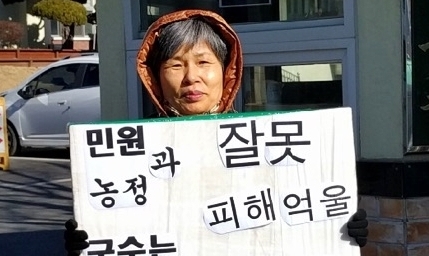 민원과 잘못
농정 피해 억울
국수는